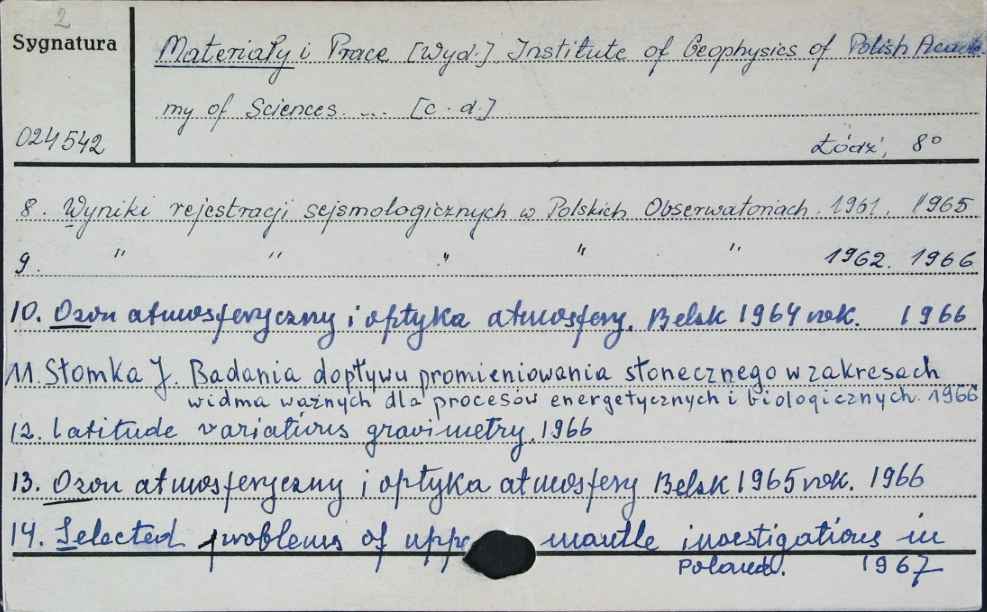 2
Sygnatura
Materiały i Prace [Wyd.] Institute of Geophysics of Polish Acade
my of Sciences ... [c. d.]
024542
Łódź, 8°
8. Wyniki rejestracji sejsmologicznych w Polskich Obserwatoriach. 1961. 1965
9. " " " " " 1962. 1966
10. Ozon atmosferyczny i optyka atmosfery. Belsk 1964 rok. 1966
11. Słomka J. Badania dopływu promieniowania słonecznego w zakresach
widma ważnych dla procesów energetycznych i biologicznych. 1966
12. Latitude variations gravimetry. 1966
13. Ozon atmosferyczny i optyka atmosfery Belsk 1965 rok. 1966
14. Selected problems of uppe mantle investigations in
Poland. 1967